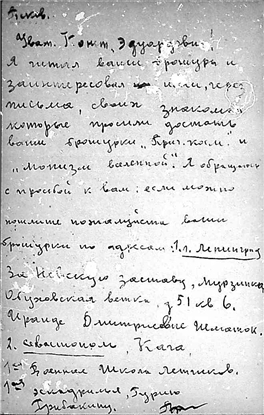 Уваж. Конст. Эдуардович!
Я читал ваши брошуры и
заинтересовал ими, через
письма, своих знакомых
которые просили достать
ваши брошурки "Прич. косм." и
"Монизм вселенной". Я обращаюсь
с просьбой к вам: если можно
пошлите пожалуйста ваши
брошурки по адресам: 1. г. Ленинград
За Невскую заставу, Мурзинка
Обуховская ветка, д 51 кв 6.
Ираиде Дмитриевне
2. Севастополь, Кача,
1ая Военная Школа Летчиков.
1ая эскадрилья, Гурию
Грибакину.